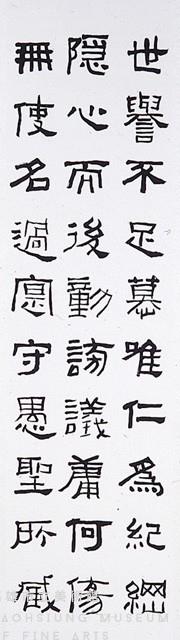 世譽不足慕唯仁爲紀綱
隱心而後動謗議庸何傷
無使名過實守愚聖所臧
AOHSIUNG MUSEUM
F FINE ARTS